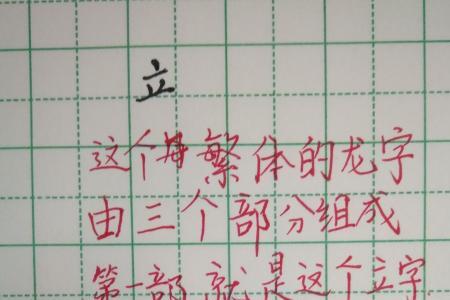 立
这个每繁体的龙字
由三个部分组成
第一部就是这个立字